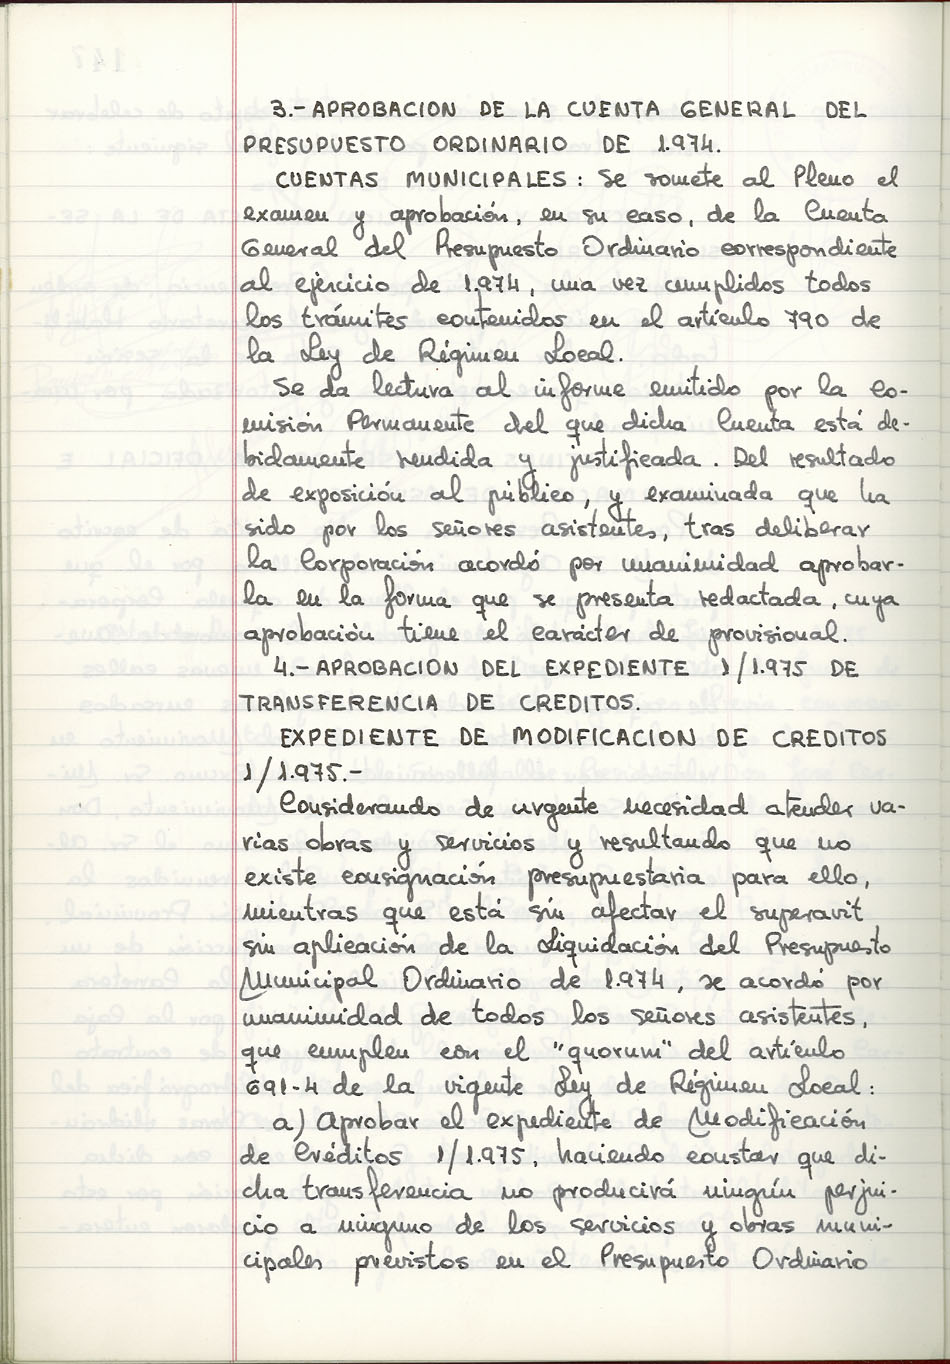 3.- APROBACION DE LA CUENTA GENERAL DEL
PRESUPUESTO ORDINARIO DE 1.974.
CUENTAS MUNICIPALES: Se somete al Pleno el
examen y aprobación, en su caso, de la Cuenta
General del Presupuesto Ordinario correspondiente
al ejercicio de 1.974, una vez cumplidos todos
los trámites contenidos en el artículo 790 de
la Ley de Régimen Local.
Se da lectura al informe emitido por la Co-
misión Permanente del que dicha Cuenta está de-
bidamente rendida y justificada. Del resultado
de exposición al público, y examinada que ha
sido por los señores asistentes, tras deliberar
la Corporación acordó por unanimidad aprobar-
la en la forma que se presenta redactada, cuya
aprobación tiene el carácter de provisional.
4.- APROBACION DEL EXPEDIENTE 1/1.975 DE
TRANSFERENCIA DE CREDITOS.
EXPEDIENTE DE MODIFICACION DE CREDITOS
1/1.975.-
Considerando de urgente necesidad atender va-
rias obras y servicios y resultando que no
existe consignación presupuestaria para ello,
mientras que está sin afectar el superavit
sin aplicación de la Liquidación del Presupuesto
Municipal Ordinario de 1.974, se acordó por
unanimidad de todos los señores asistentes,
que cumplen con el "quorum" del artículo
691-4 de la vigente Ley de Régimen Local:
a) Aprobar el expediente de Modificación
de Créditos 1/1.975, haciendo constar que di-
cha transferencia no producirá ningún perjui-
cio a ninguno de los servicios y obras muni-
cipales previstos en el Presupuesto Ordinario